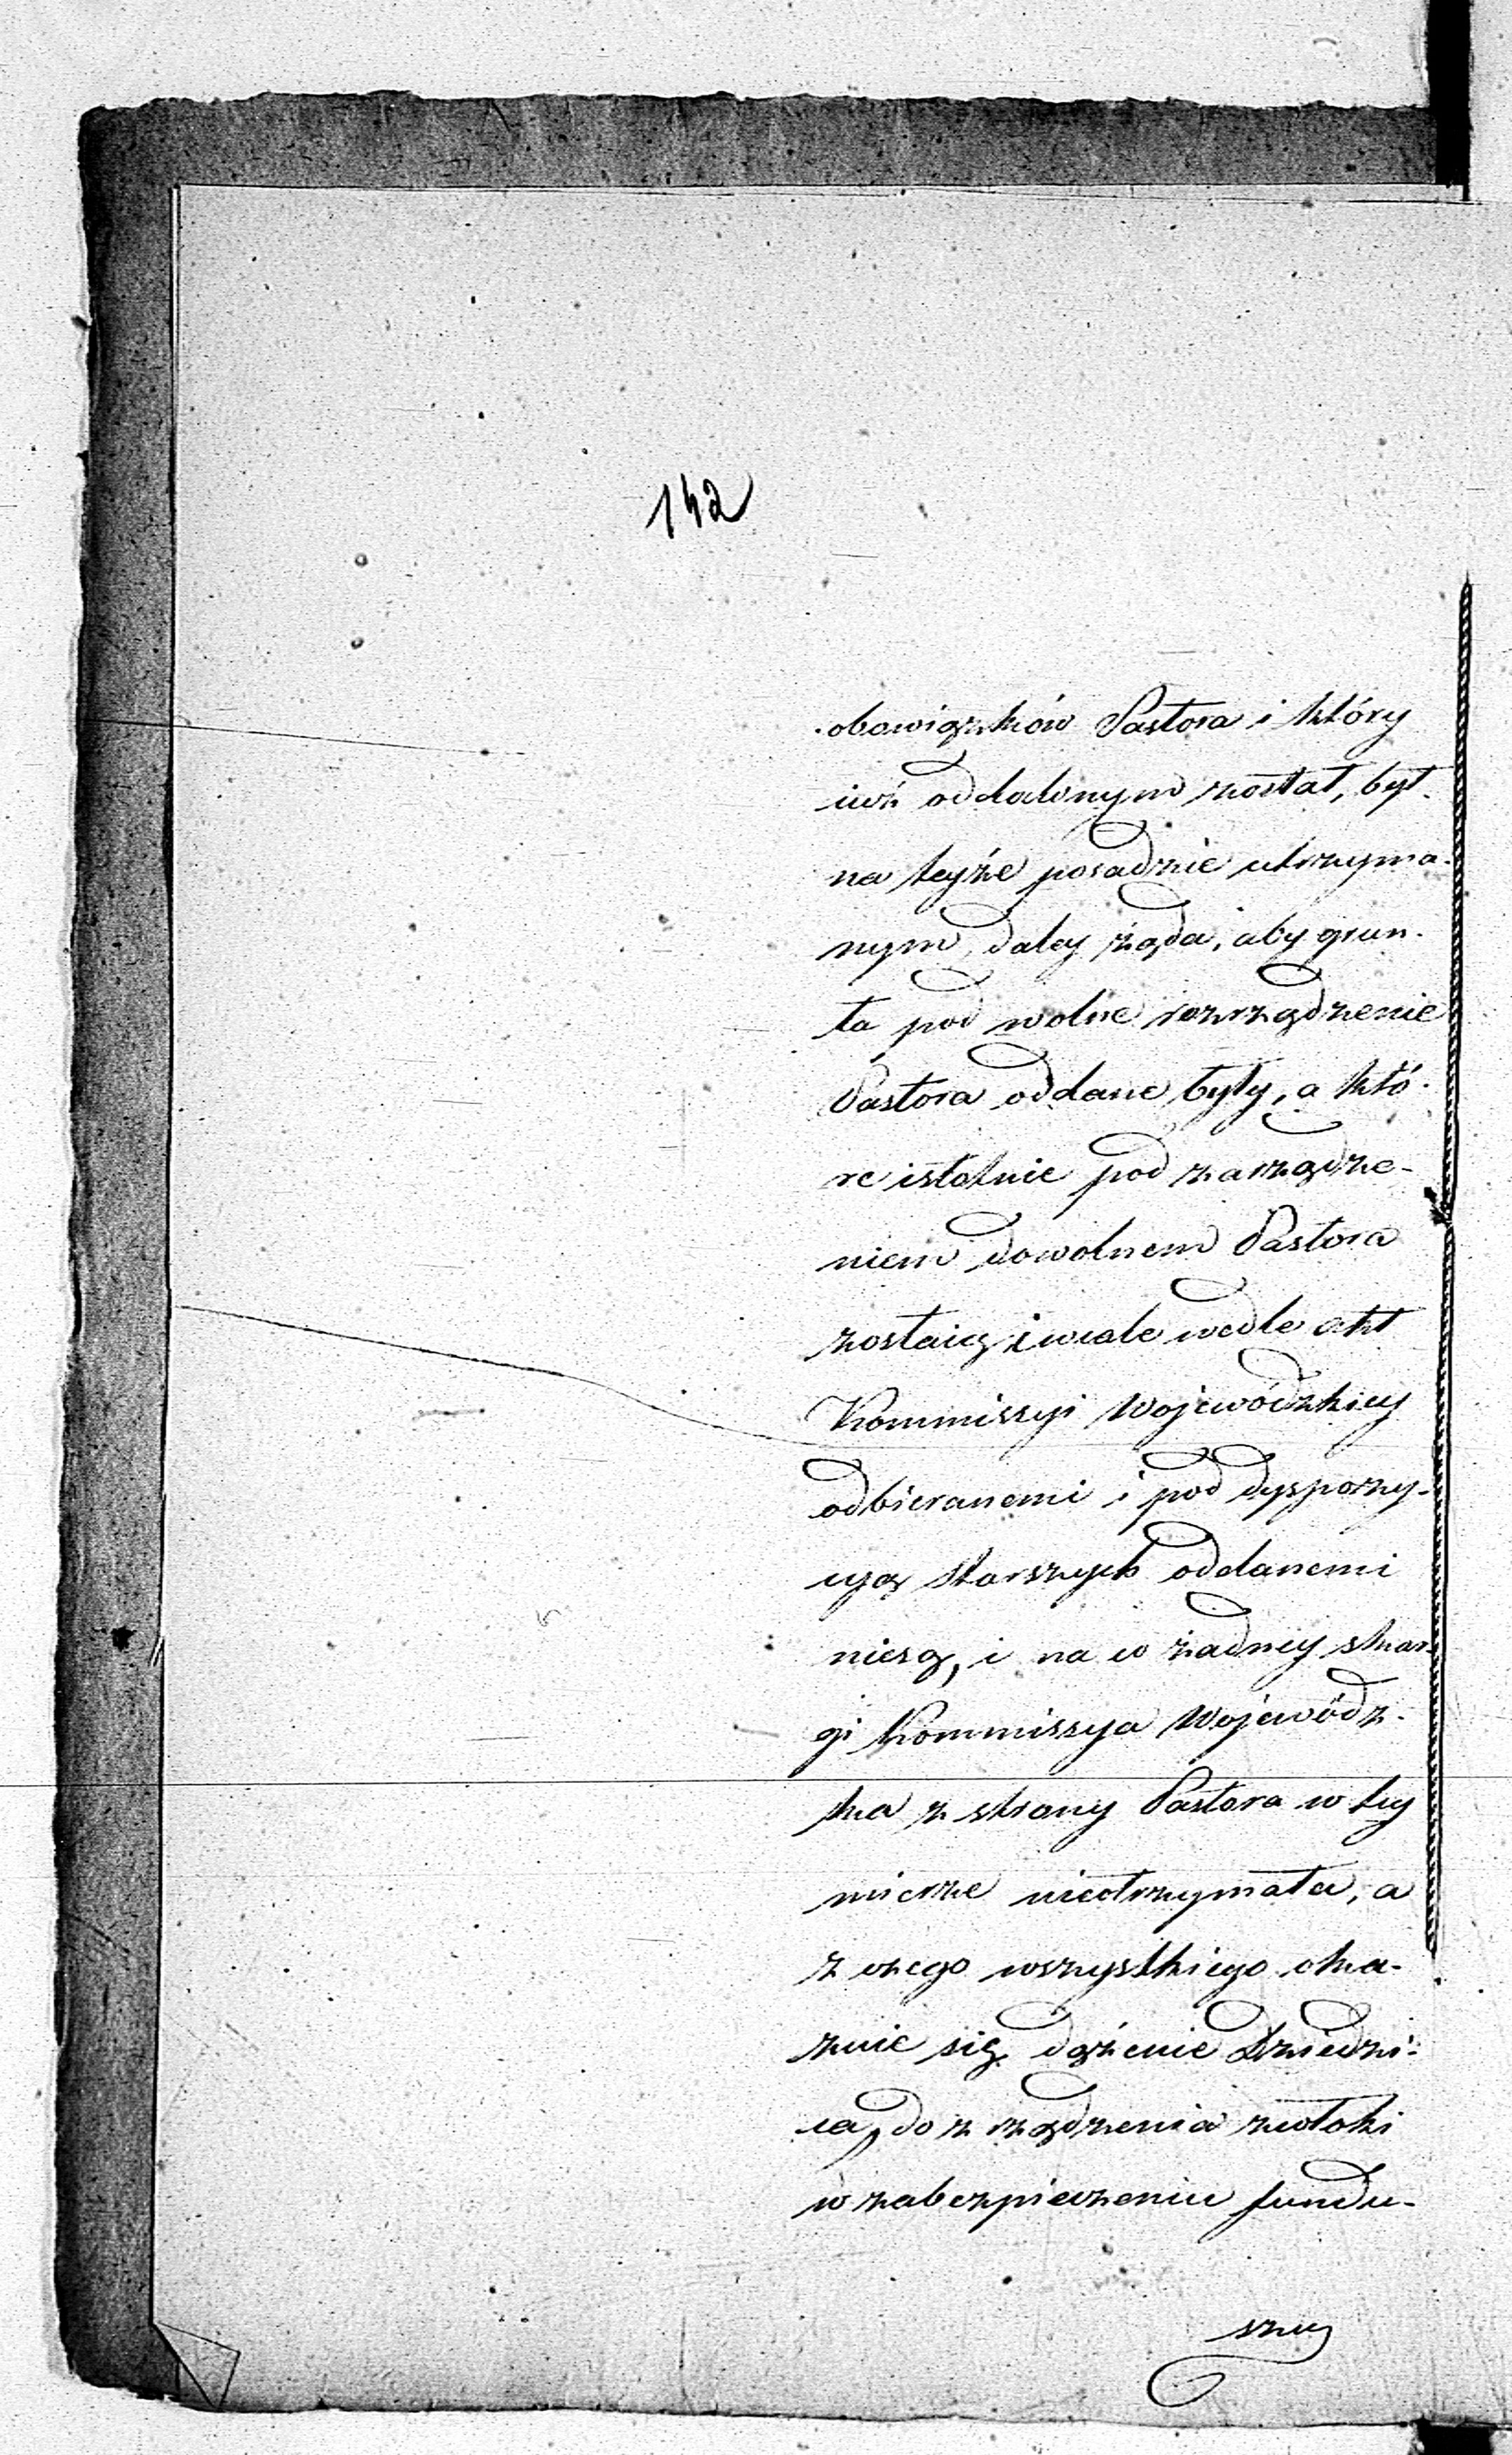 142
obowiązków Pastora i który
iuż oddalonym został, był
na teyże posadzie utrzyma-
nym, daley żąda, aby grun-
ta pod wolne rozrządzenie
Pastora oddane były, a któ-
re istotnie pod zarządze-
niem dowolnem Pastora
zostaią i wcale wedle akt
Kommissyi Wojewódzkiey
odbieranemi i pod dyspozy-
cyą Starszych oddanemi
niesą, i na co żadney skar-
gi Kommissya Wojewódz-
ka z strony Pastora w tey
mierze nieotrzymała, a
z czego wszystkiego oka-
zuie się dążenie Dziedzi-
ca, do zrządzenia zwłoki
w zabezpieczeniu fundu-
szu